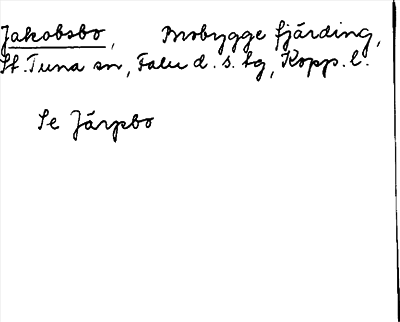 Jakobsbo, Brobygge fjärding,
St. Tuna sn, Falu d. s. tg, Kopp. l.
Se Järpbo